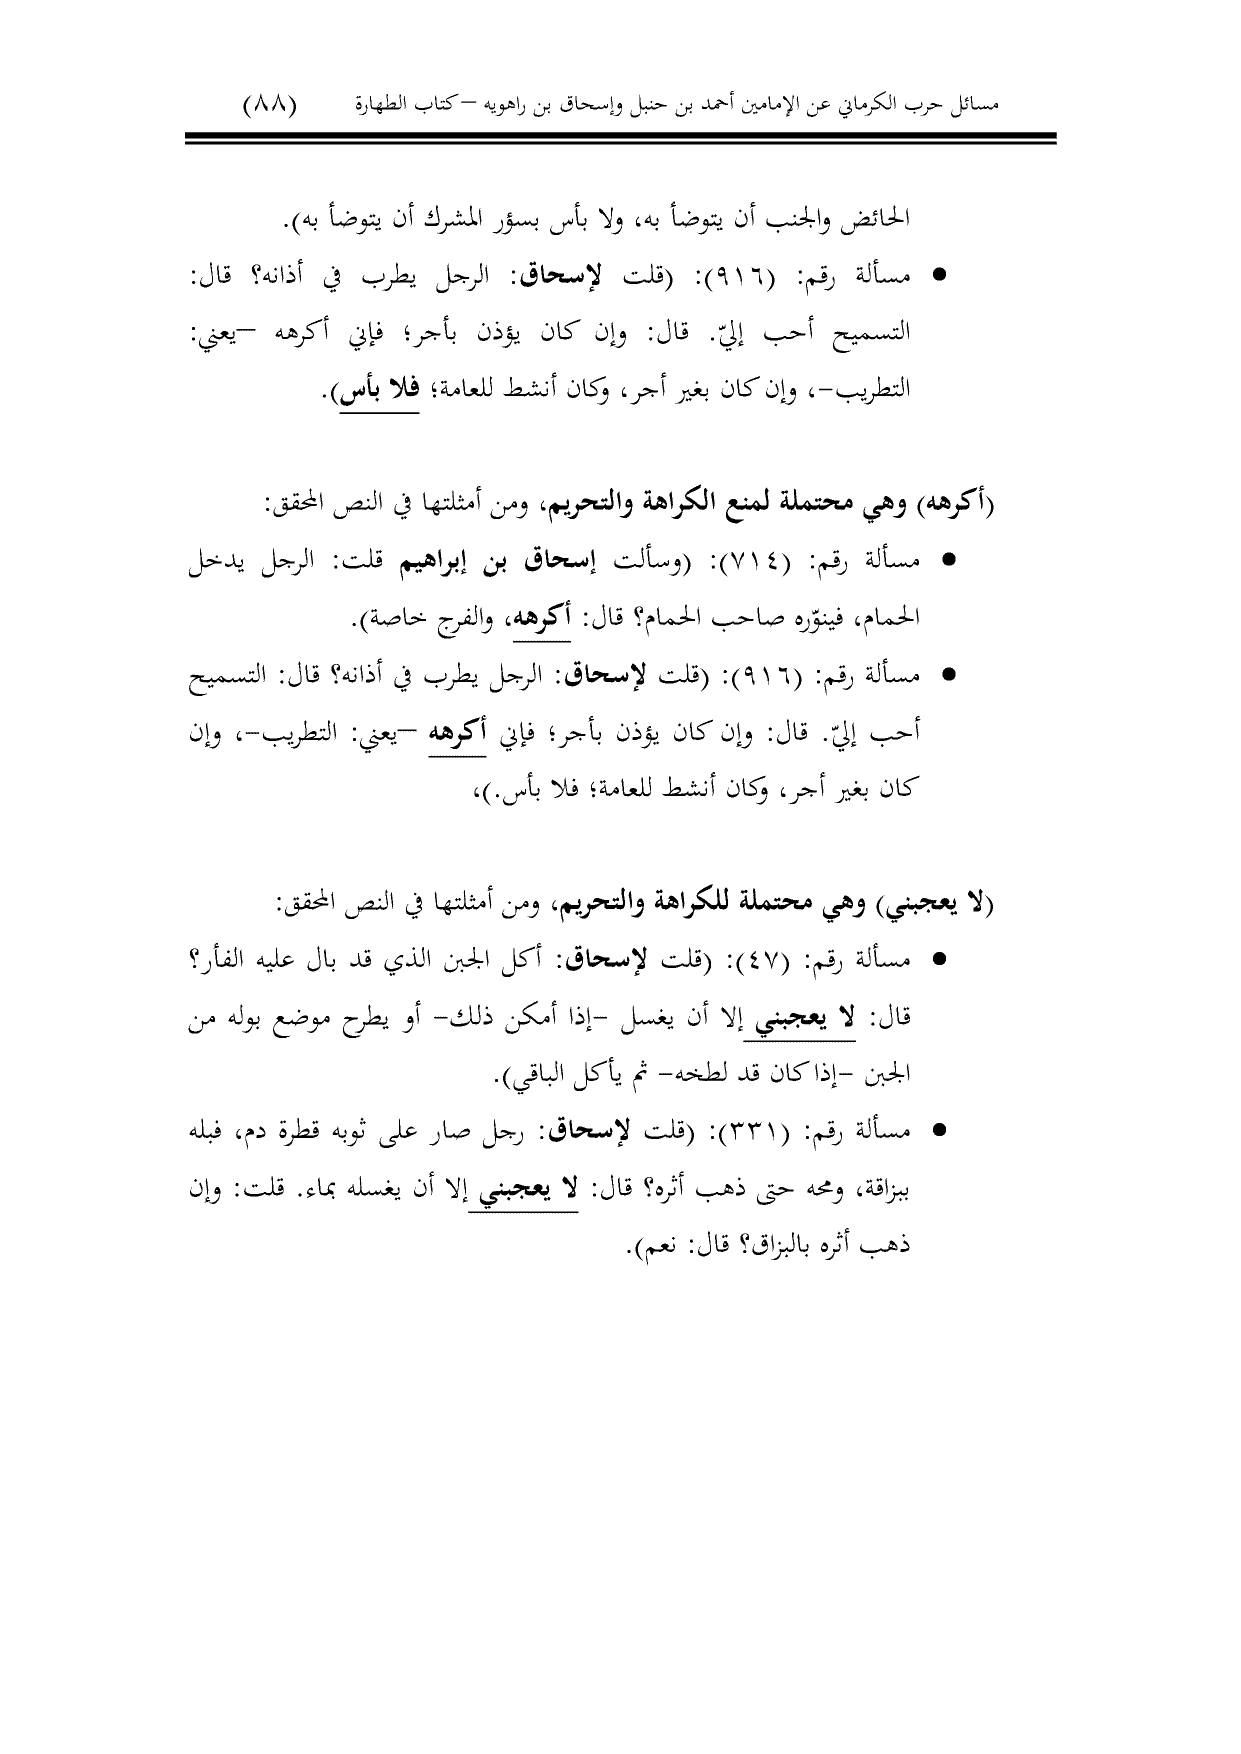 مسائل حرب الكرماني عن الإمامين أحمد بن حنبل وإسحاق بن راهويه –كتاب الطهارة (٨٨)
الحائض والجنب أن يتوضأ به، ولا بأس بسؤر المشرك أن يتوضأ به).
● مسألة رقم: (٩١٦): (قلت لإسحاق: الرجل يطرب في أذانه؟ قال:
التسميح أحب إليّ. قال: وإن كان يؤذن بأجر؛ فإني أكرهه –يعني:
التطريب-، وإن كان بغير أجر، وكان أنشط للعامة؛ فلا بأس).
(أكرهه) وهي محتملة لمنع الكراهة والتحريم، ومن أمثلتها في النص المحقق:
● مسألة رقم: (٧١٤): (وسألت إسحاق بن إبراهيم قلت: الرجل يدخل
الحمام، فينوّره صاحب الحمام؟ قال: أكرهه، والفرج خاصة).
● مسألة رقم: (٩١٦): (قلت لإسحاق: الرجل يطرب في أذانه؟ قال: التسميح
أحب إليّ. قال: وإن كان يؤذن بأجر؛ فإني أكرهه –يعني: التطريب-، وإن
كان بغير أجر، وكان أنشط للعامة؛ فلا بأس.)،
(لا يعجبني) وهي محتملة للكراهة والتحريم، ومن أمثلتها في النص المحقق:
● مسألة رقم: (٤٧): (قلت لإسحاق: أكل الجبن الذي قد بال عليه الفأر؟
قال: لا يعجبني إلا أن يغسل -إذا أمكن ذلك- أو يطرح موضع بوله من
الجبن -إذا كان قد لطخه- ثم يأكل الباقي).
● مسألة رقم: (٣٣١): (قلت لإسحاق: رجل صار على ثوبه قطرة دم، فبله
ببزاقة، ومحه حتى ذهب أثره؟ قال: لا يعجبني إلا أن يغسله بماء. قلت: وإن
ذهب أثره بالبزاق؟ قال: نعم).